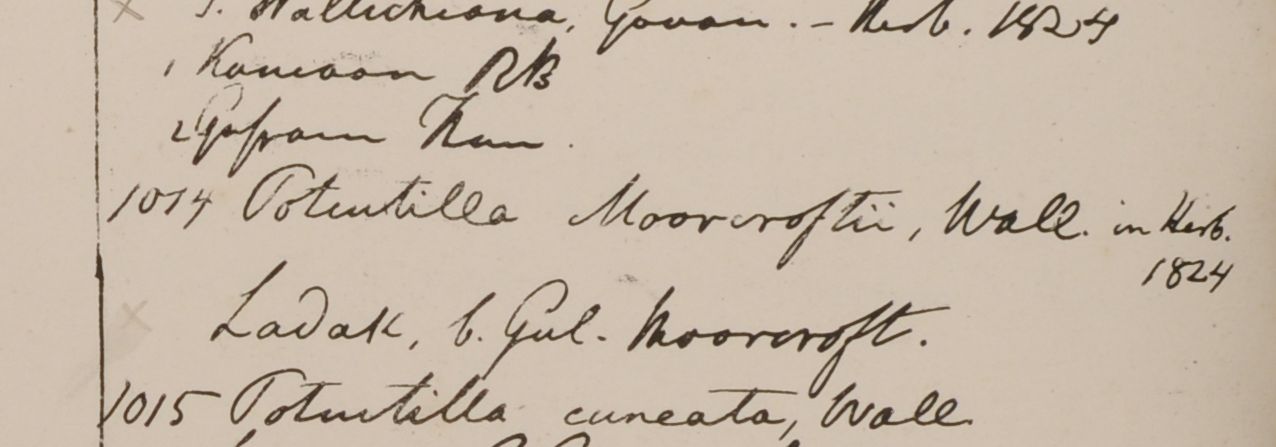 Wallichiana, Govan. - Herb. 1824
1 Kamaon RB
2 Gossain Than.
1014 Potentilla Moorcroftii, Wall. in Herb.
1824
Ladak, b. Gul. Moorcroft.
1015 Potentilla cuneata, Wall.